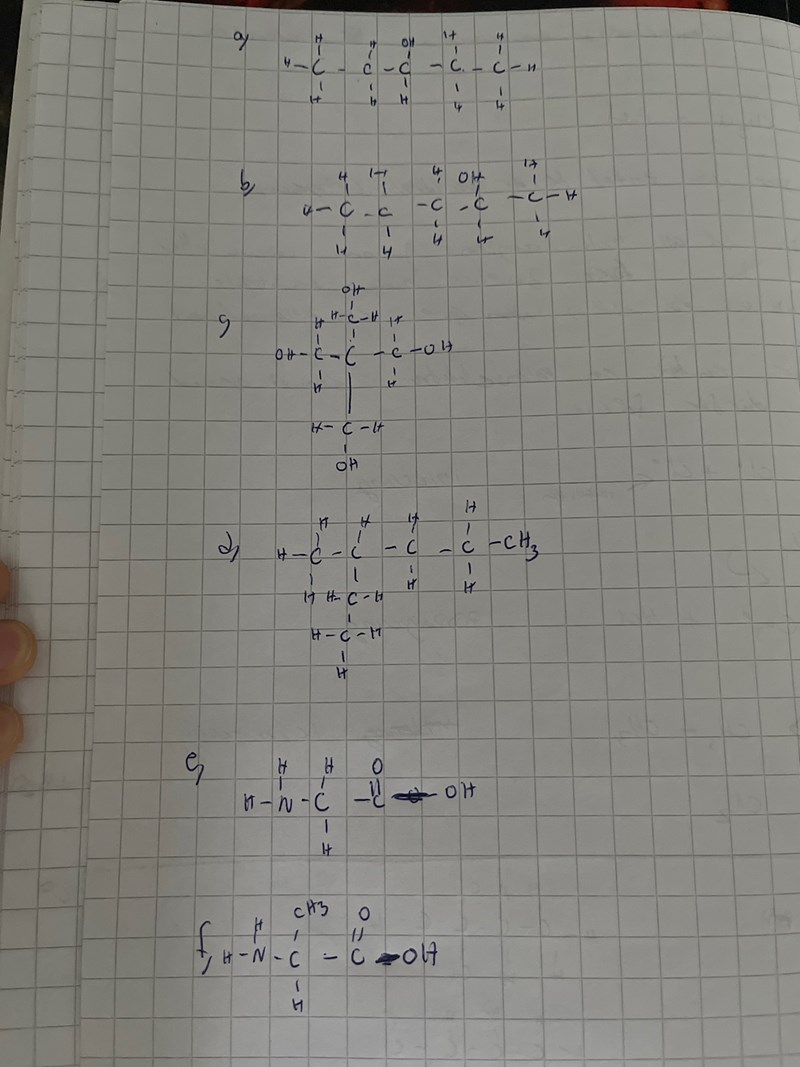 a)
H H OH H H
H-C-C-C-C-C-H
H H H H H
b)
H H H OH H
H-C-C-C-C-C-H
H H H H H
c)
OH
H H-C-H H
HO-C-C-C-OH
H H
H-C-H
OH
d)
H H H H
H-C-C-C-C-CH3
H H-C-H H H
H-C-H
H
e)
H H O
H-N-C-C-OH
H
f)
H CH3 O
H-N-C-C-OH
H